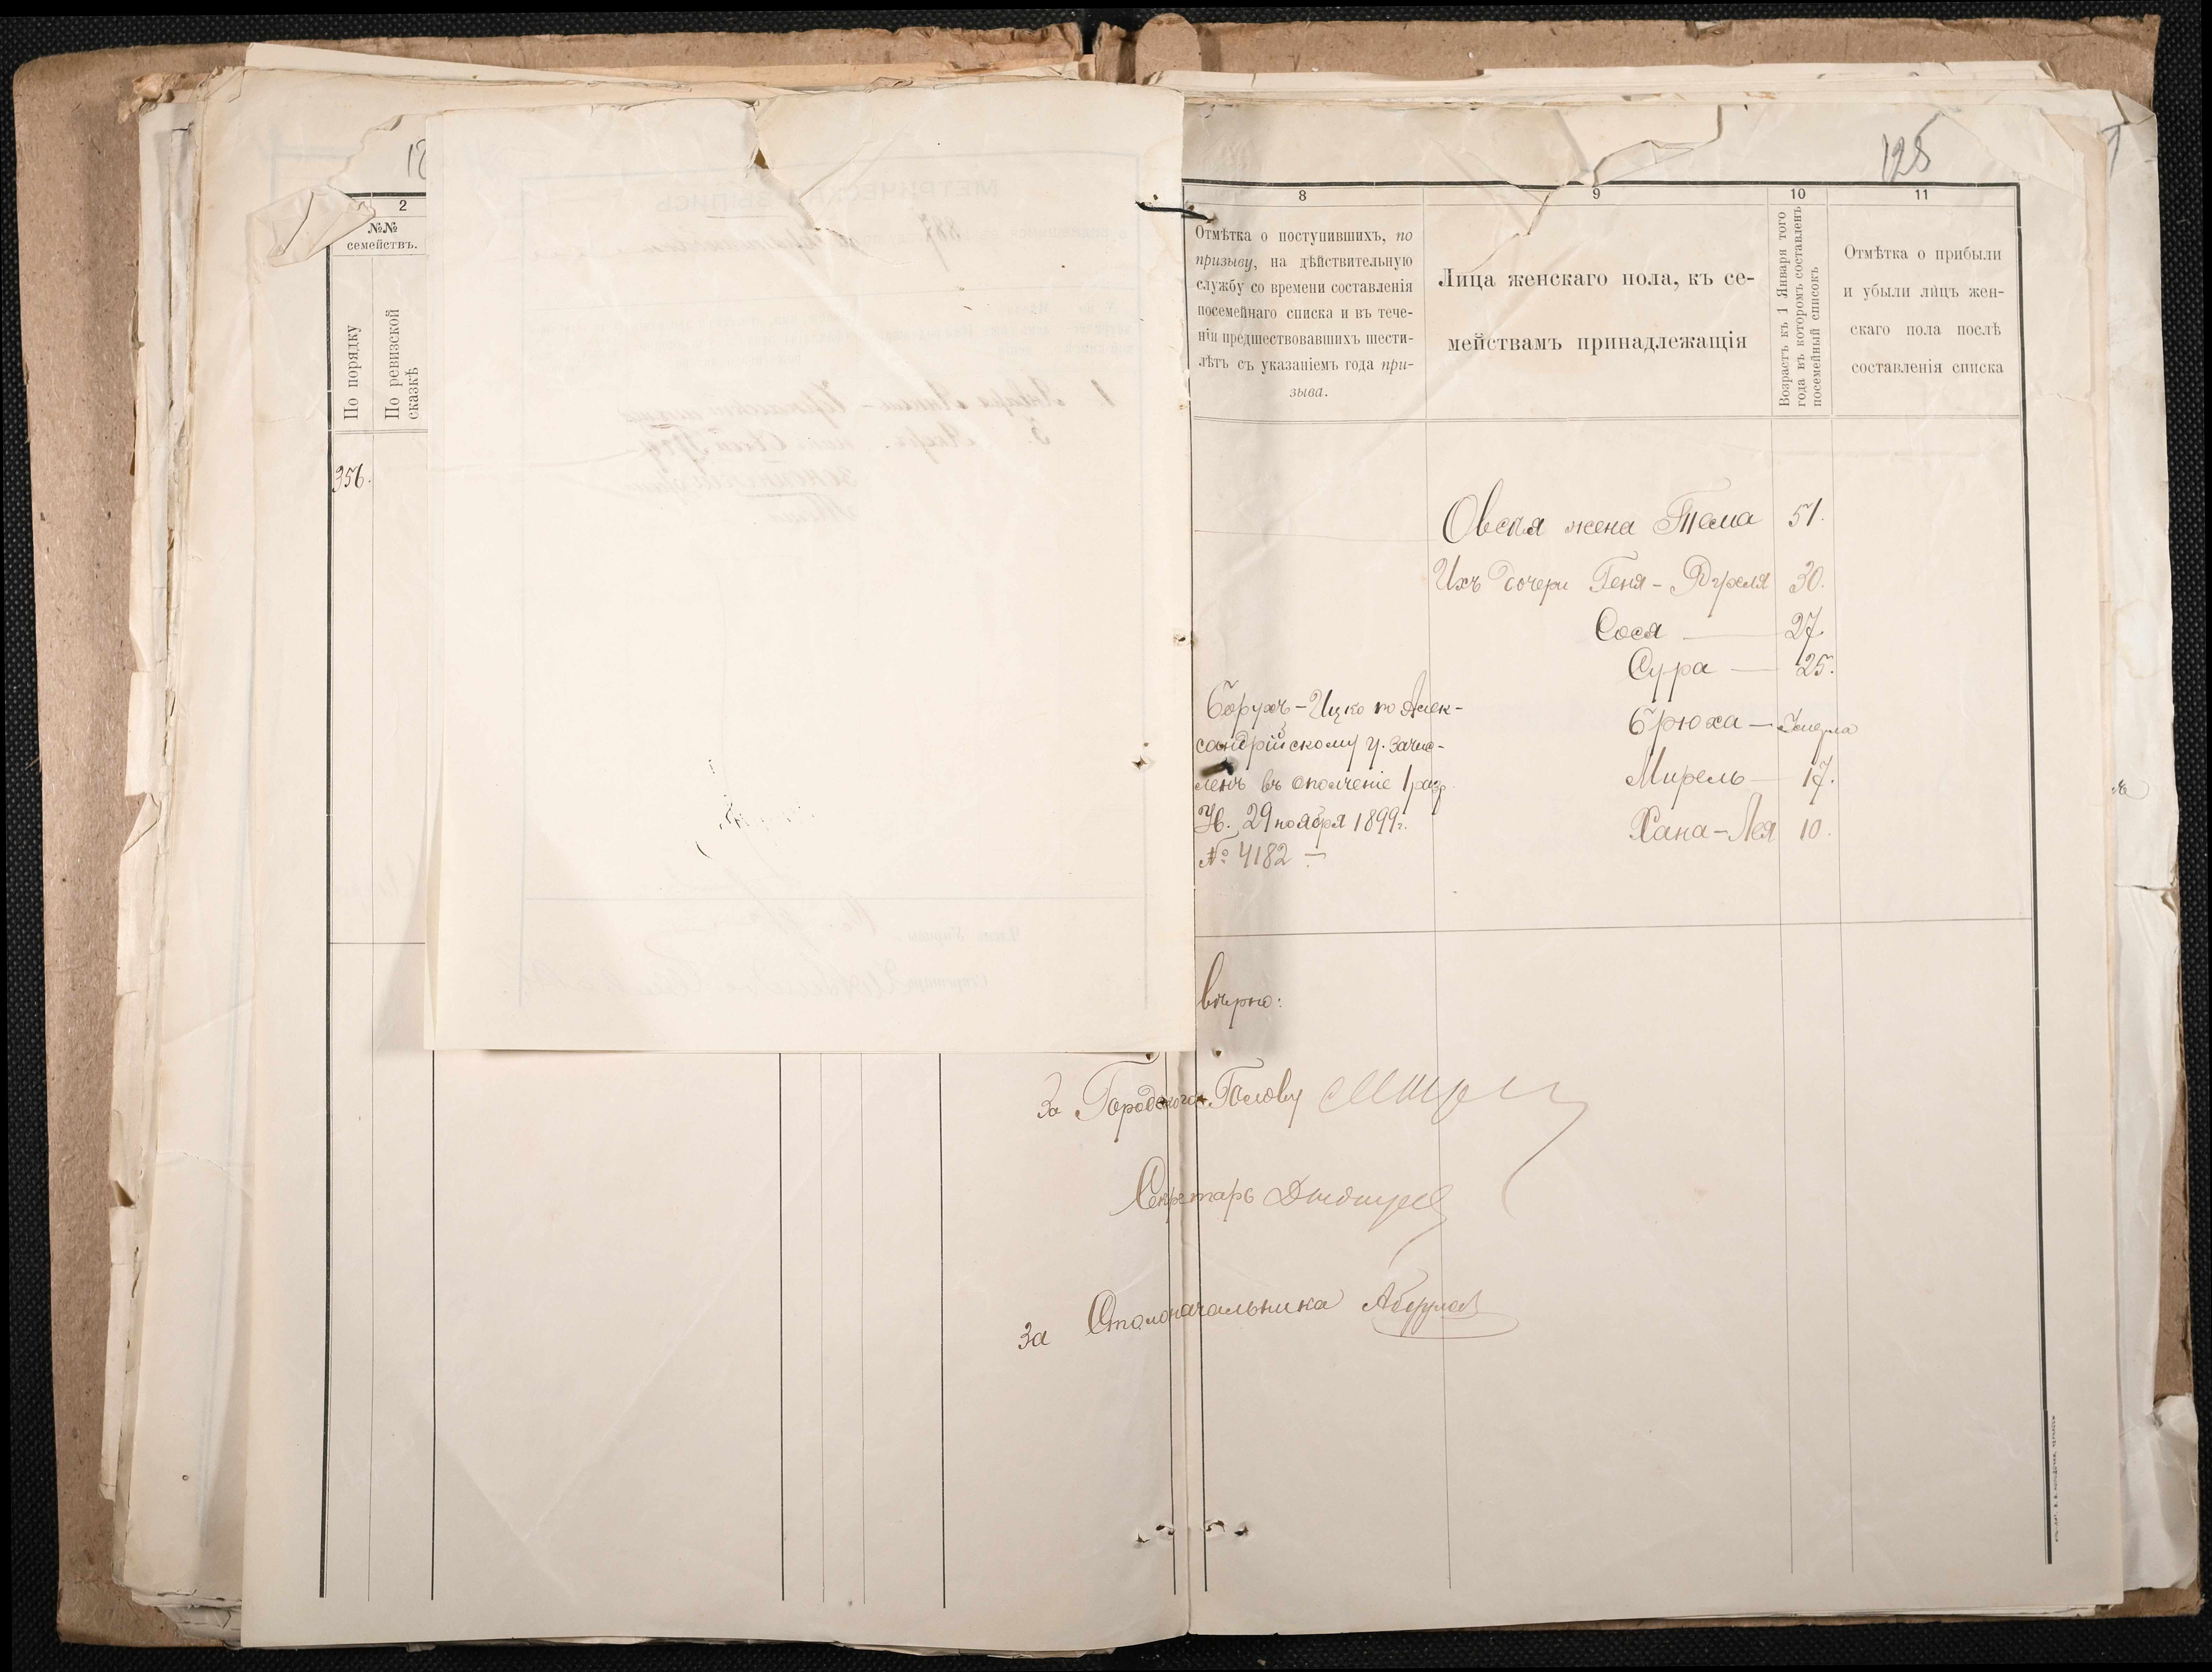 128
2
№№
семействъ.
По порядку
По ревизской
сказкѣ
356.
8
Отмѣтка о поступившихъ, по
призыву, на дѣйствительную
службу со времени составленія
посемейнаго списка и въ тече-
ніи предшествовавшихъ шести-
лѣтъ съ указаніемъ года при-
зыва.
9
Лица женскаго пола, къ се-
мействамъ принадлежащія
10
Возрастъ къ 1 Января того
года въ которомъ составленъ
посемейный списокъ
11
Отмѣтка о прибыли
и убыли лицъ жен-
скаго пола послѣ
составленія списка
Овсѣя жена Тема 51.
Ихъ дочери Геня-Рухля 30.
Сося — 27.
Сура — 25.
Брюха — Умерла
Мирель — 17.
Хана-Лея 10.
Борухъ-Ицко по Алек-
сандрійскому у. зачис-
ленъ въ ополченіе 1 разр.
29 ноября 1899 г.
№ 4182 —
вѣрно:
За Городского Голову
Секретарь
За Столоначальника